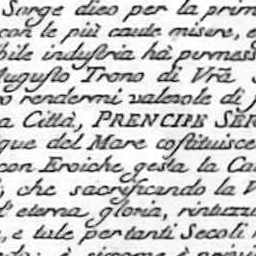 Sorge dico per la prim
con le più caute misure, e
bile industria hà permess
Augusto Trono di Vrã
o rendermi valevole di
a Città, PRENCIPE SER
que del Mare costituisce
con Eroiche gesta la Ca
, che sacrificando la V
d'eterna gloria, rintuzza
, e tale per tanti Secoli